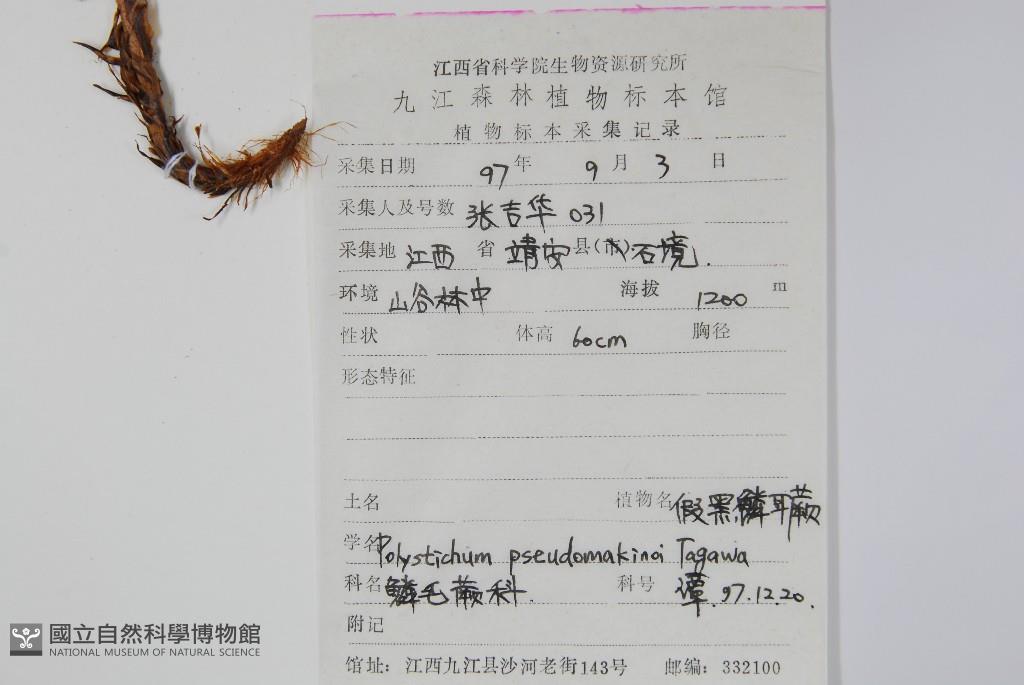 江西省科学院生物资源研究所
九江森林植物标本馆
植物标本采集记录
采集日期 97年 9月 3日
采集人及号数 张吉华 031
采集地 江西 省 靖安 县(市) 石境.
环境 山谷林中 海拔 1200 m
性状 体高 60cm 胸径
形态特征
土名 植物名 假黑鳞耳蕨
学名 Polystichum pseudomakinoi Tagawa
科名 鳞毛蕨科. 科号 谭. 97.12.20.
附记
馆址: 江西九江县沙河老街143号 邮编: 332100
國立自然科學博物館
NATIONAL MUSEUM OF NATURAL SCIENCE